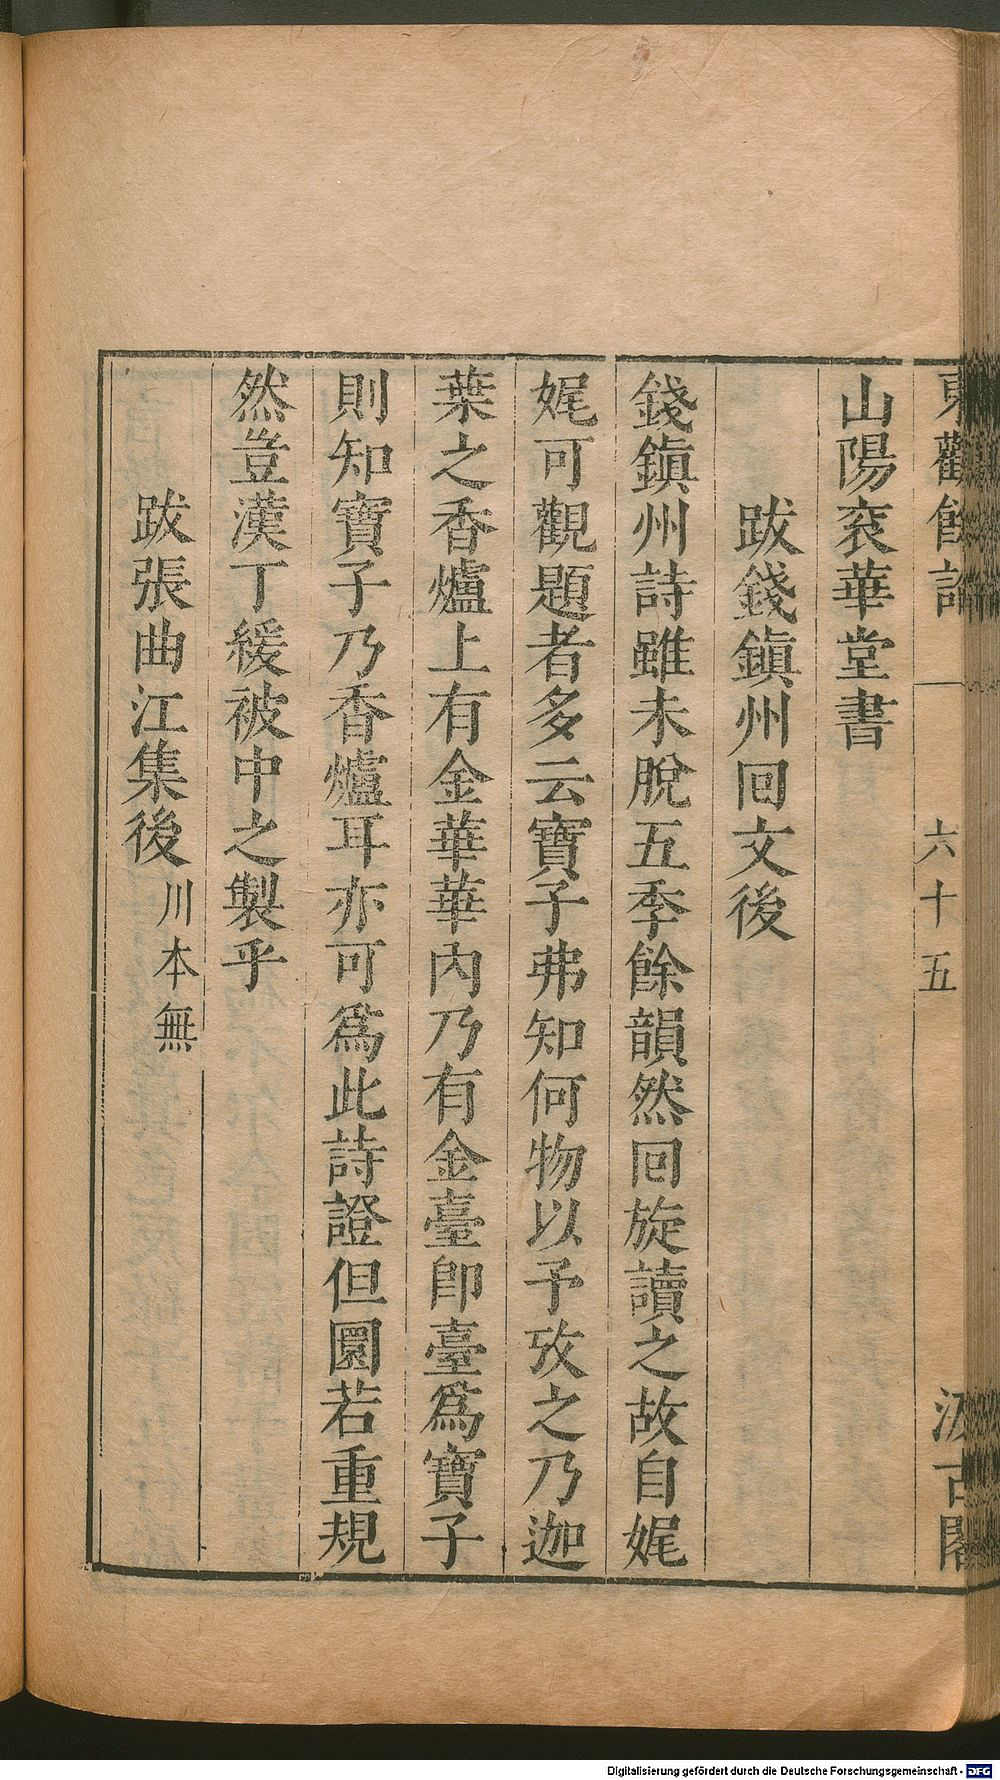 東觀餘論
六十五
汲古閣
山陽衮華堂書
跋錢鎭州回文後
錢鎭州詩雖未脫五季餘韻然回旋讀之故自娓
娓可觀題者多云寶子弗知何物以予攷之乃迦
葉之香爐上有金華華內乃有金臺卽臺爲寶子
則知寶子乃香爐耳亦可爲此詩證但圜若重規
然豈漢丁緩被中之製乎
跋張曲江集後川本無
Digitalisierung gefördert durch die Deutsche Forschungsgemeinschaft - DFG